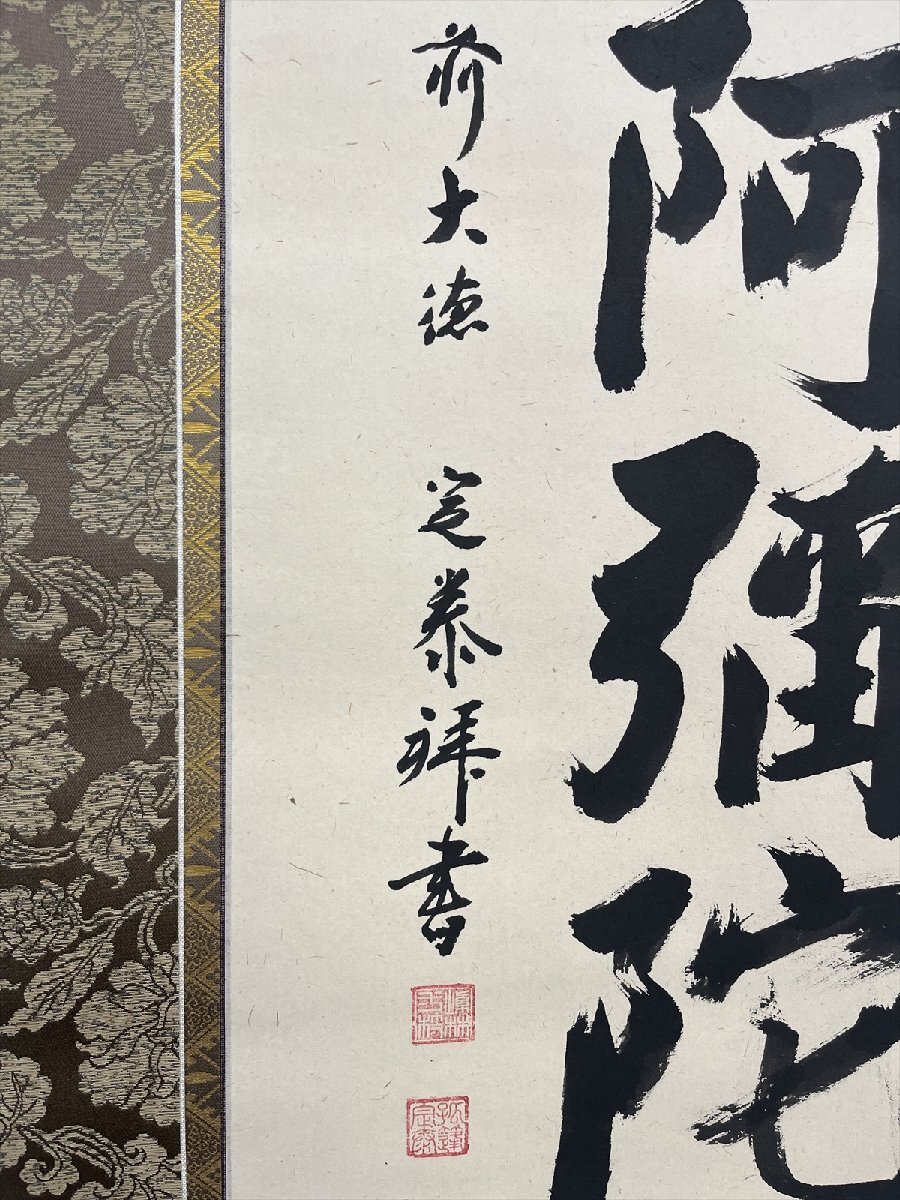 阿弥陀
前大徳 定泰拝書